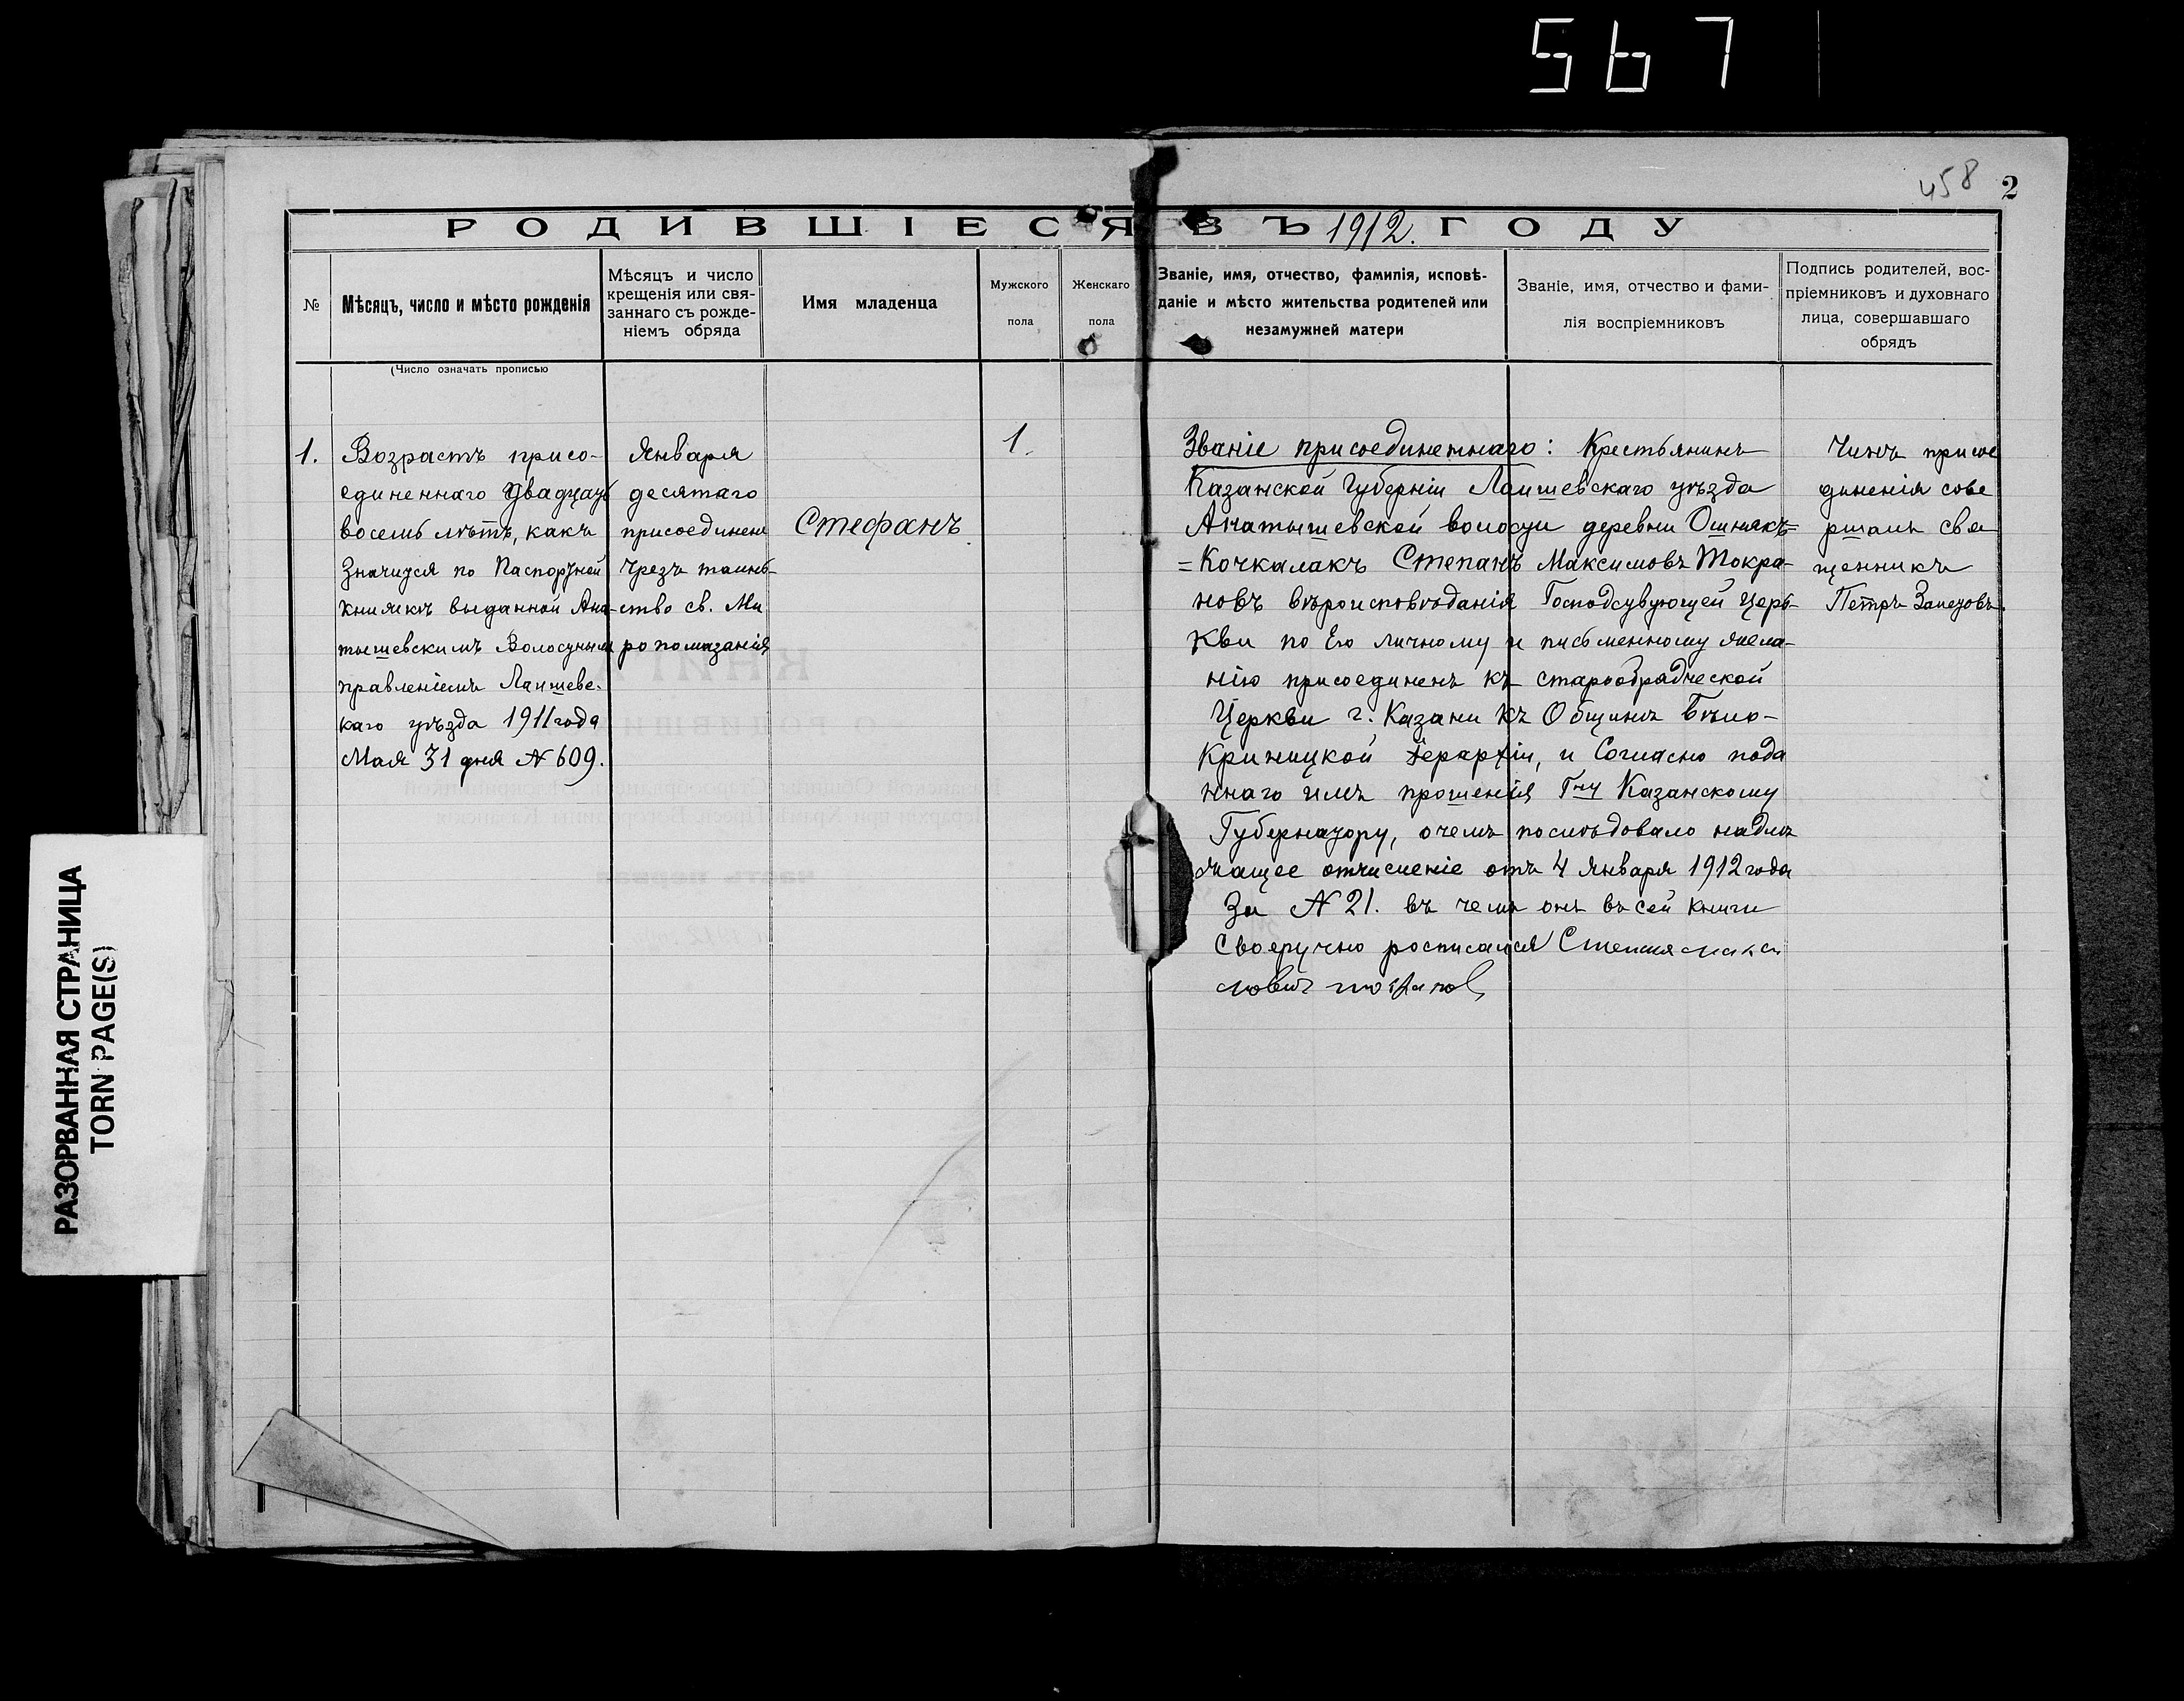 567
458 2
РОДИВШІЕСЯ ВЪ 1912. ГОДУ
№
Мѣсяцъ, число и мѣсто рожденія
Мѣсяцъ и число
крещенія или свя-
заннаго съ рожде-
ніемъ обряда
Имя младенца
Мужского
пола
Женскаго
пола
Званіе, имя, отчество, фамилія, исповѣ-
даніе и мѣсто жительства родителей или
незамужней матери
Званіе, имя, отчество и фами-
лія воспріемниковъ
Подпись родителей, вос-
пріемниковъ и духовнаго
лица, совершавшаго
обрядъ
(Число означать прописью
1.
Возрастъ присо-
единеннаго двадцать
восемь лѣтъ, какъ
значится по Паспортной
книжкѣ выданной Ана-
тышевскимъ Волостнымъ
правленіемъ Лаишевс-
каго уѣзда 1911 года
Мая 31 дня № 609.
Января
десятаго
присоединенъ
чрезъ таинь-
ство св. Ми
ропомазанія
Стефанъ
1.
Званіе присоединеннаго: Крестьянинъ
Казанской Губерніи Лаишевскаго уѣзда
Анатышевской волости деревни Ошнякъ=
=Кочкалакъ Степанъ Максимовъ Токра-
новъ вѣроисповѣданія Господствующей Церь-
кви по Его личному и письменному жела-
нію присоединенъ къ старообрядческой
Церкви г. Казани къ Общинѣ Бѣло-
Криницкой Іерархіи, и Согласно пода
ннаго имъ прошенія Г-ну Казанскому
Губернатору, очемъ послѣдовало надле
жащее отчисленіе отъ 4 Января 1912 года
За № 21. въ чемъ онъ въ сей книги
Своеручно росписался Степан макси
мовичъ
Чинъ присое
диненія сове
ршалъ свя
щенникъ
Петръ Залетовъ.
РАЗОРВАННАЯ СТРАНИЦА
TORN PAGE(S)